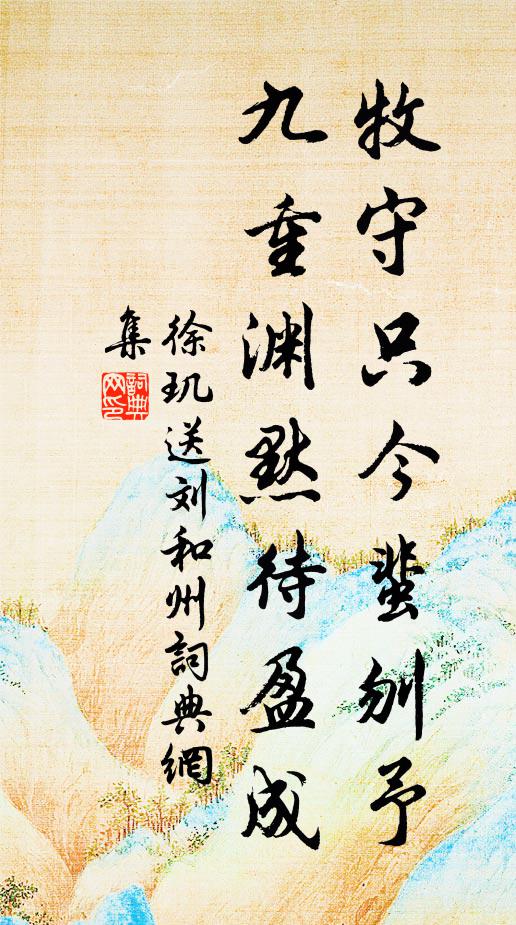 牧守只今蜚刎予
九重渊默待盈成
徐玑送刘和州詞典網
集
詞典
网